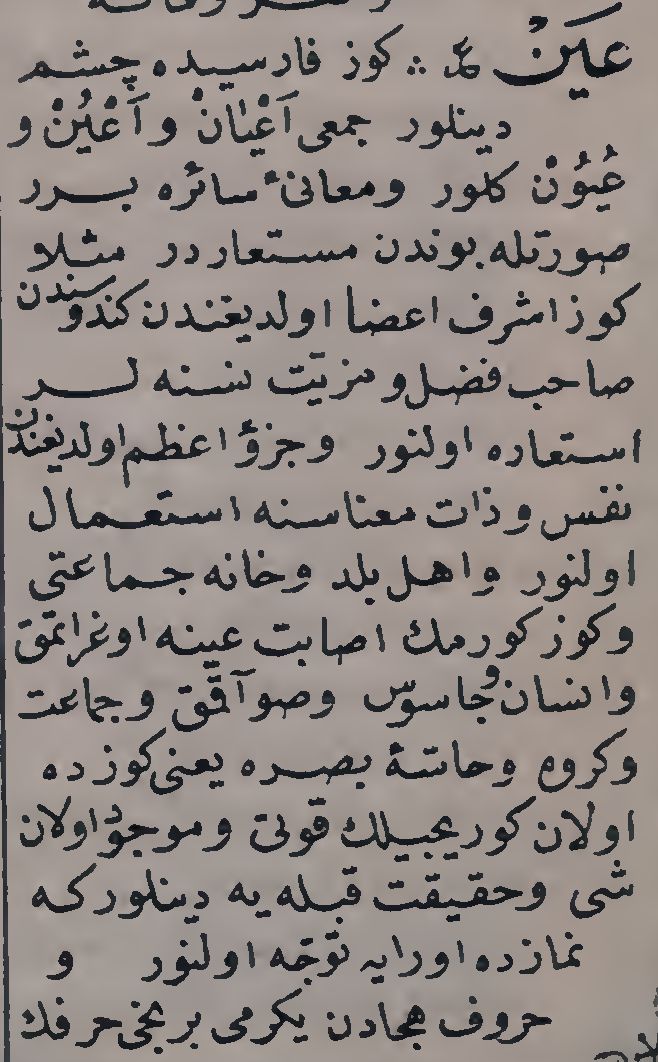 عَيْنْ ع ∴ كوز فارسيده چشم
دينلور جمعى اَعْيَانْ و اَعْيُنْ و
عُيُوْنْ كلور ومعانئ سائره برر
صورتله بوندن مستعاردر مثلا
كوز اشرف اعضا اولديغندن كندوسندن
صاحب فضل و مزيّت نسنه لر
استعاره اولنور وجزؤ اعظم اولديغندن
نفس و ذات معناسنه استعمال
اولنور واهل بلد وخانه جماعتى
وكوز كورمك اصابت عينه اوغراتمق
وانسان و جاسوس وصو آقمق وجماعت
وكروه وحاسّۀ بصره يعنى كوزده
اولان كوريجيلك قوتى وموجود اولان
شى وحقيقت قبله يه دينلور كه
نمازده اورايه توجّه اولنور و
حروف هجادن يكرمى برنجى حرفك